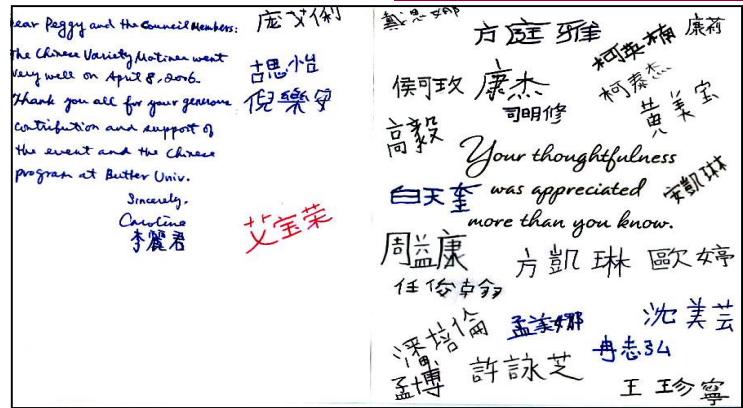 ear Peggy and the Council Members:
The Chinese Variety Matinee went
very well on April 8, 2006.
Thank you all for your generous
contribution and support of
the event and the Chinese
program at Butler Univ.
Sincerely,
Caroline
李麗君
庞艾俐
古思怡
倪樂安
艾宝荣
戴思娜
方庭雅
柯英楠
康荷
侯可玫
康杰
柯泰杰
司明修
黄美宝
高毅
Your thoughtfulness
was appreciated
more than you know.
白天奎
安凱琳
周益康
方凱琳
歐婷
潘培倫
孟美娜
沈美芸
冉志弘
孟博
許詠芝
王珍寧